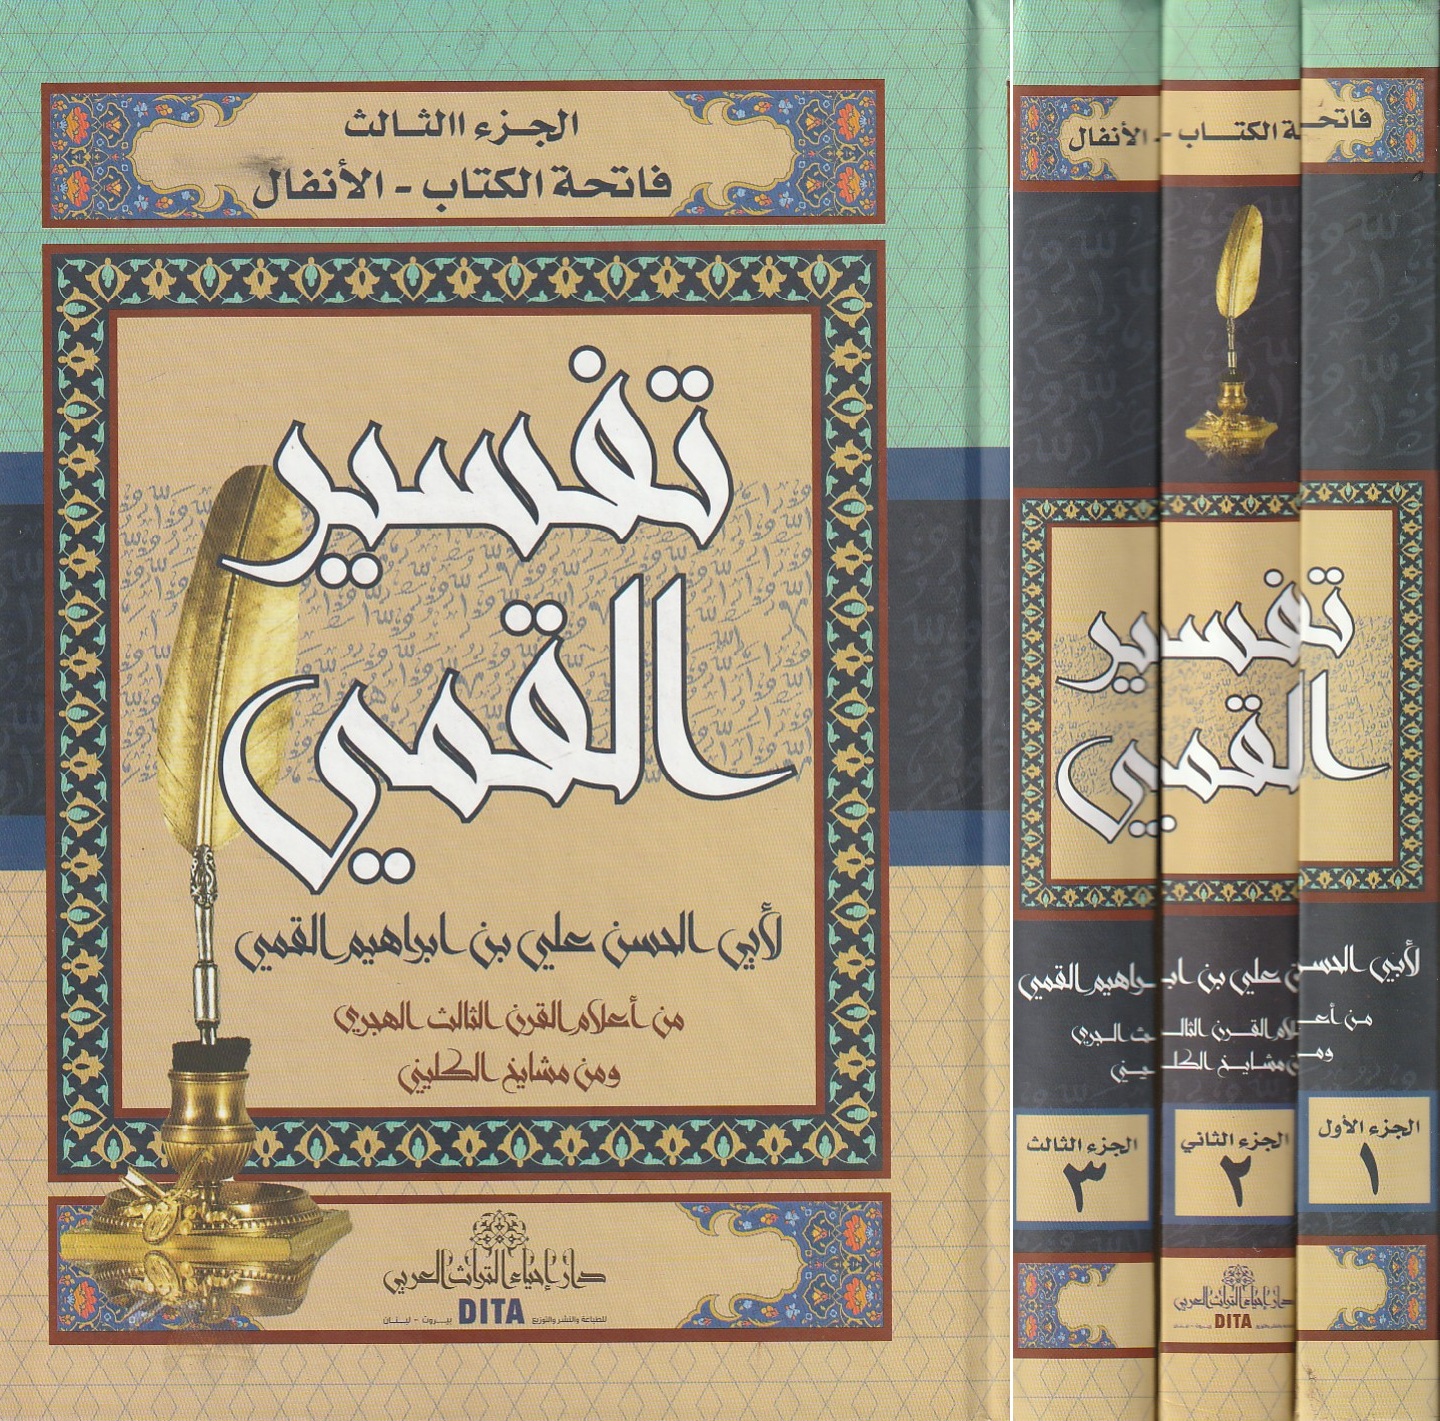 الجزء االثالث
فاتحة الكتاب - الأنفال
تفسير
القمي
لأبي الحسن علي بن ابراهيم القمي
من أعلام القرن الثالث الهجري
ومن مشايخ الكليني
دار إحياء التراث العربي
للطباعة والنشر والتوزيع DITA بيروت - لبنان
فاتحة الكتاب - الأنفال
تفسير
القمي
لأبي الحسن علي بن ابراهيم القمي
من أعلام القرن الثالث الهجري
ومن مشايخ الكليني
الجزء الأول
١
الجزء الثاني
٢
الجزء الثالث
٣
دار إحياء التراث العربي
DITA